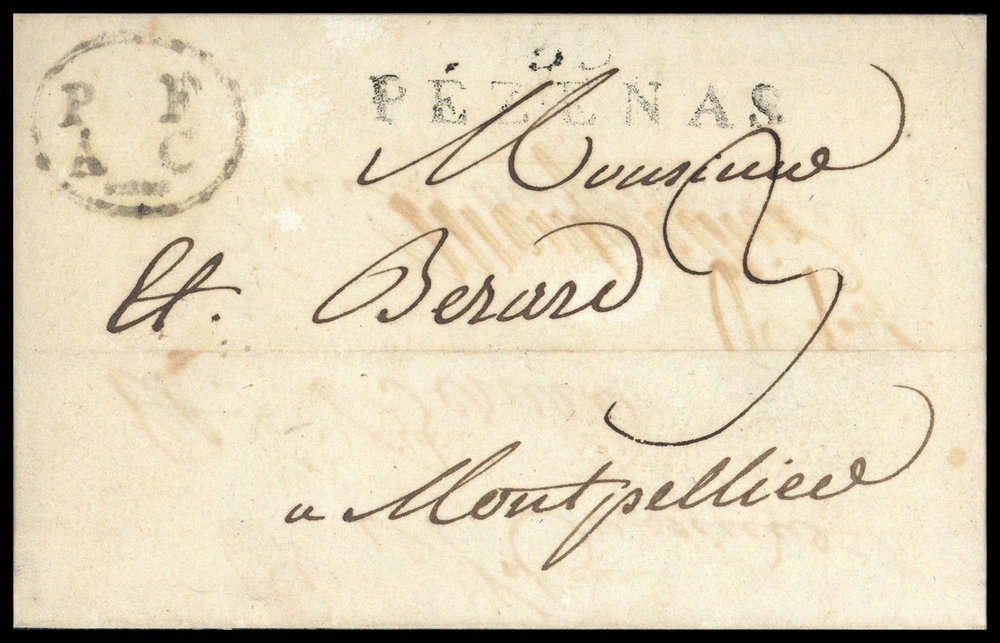 P F
A C
PÉZENAS
Monsieur
Et. Berard
3
a Montpellier